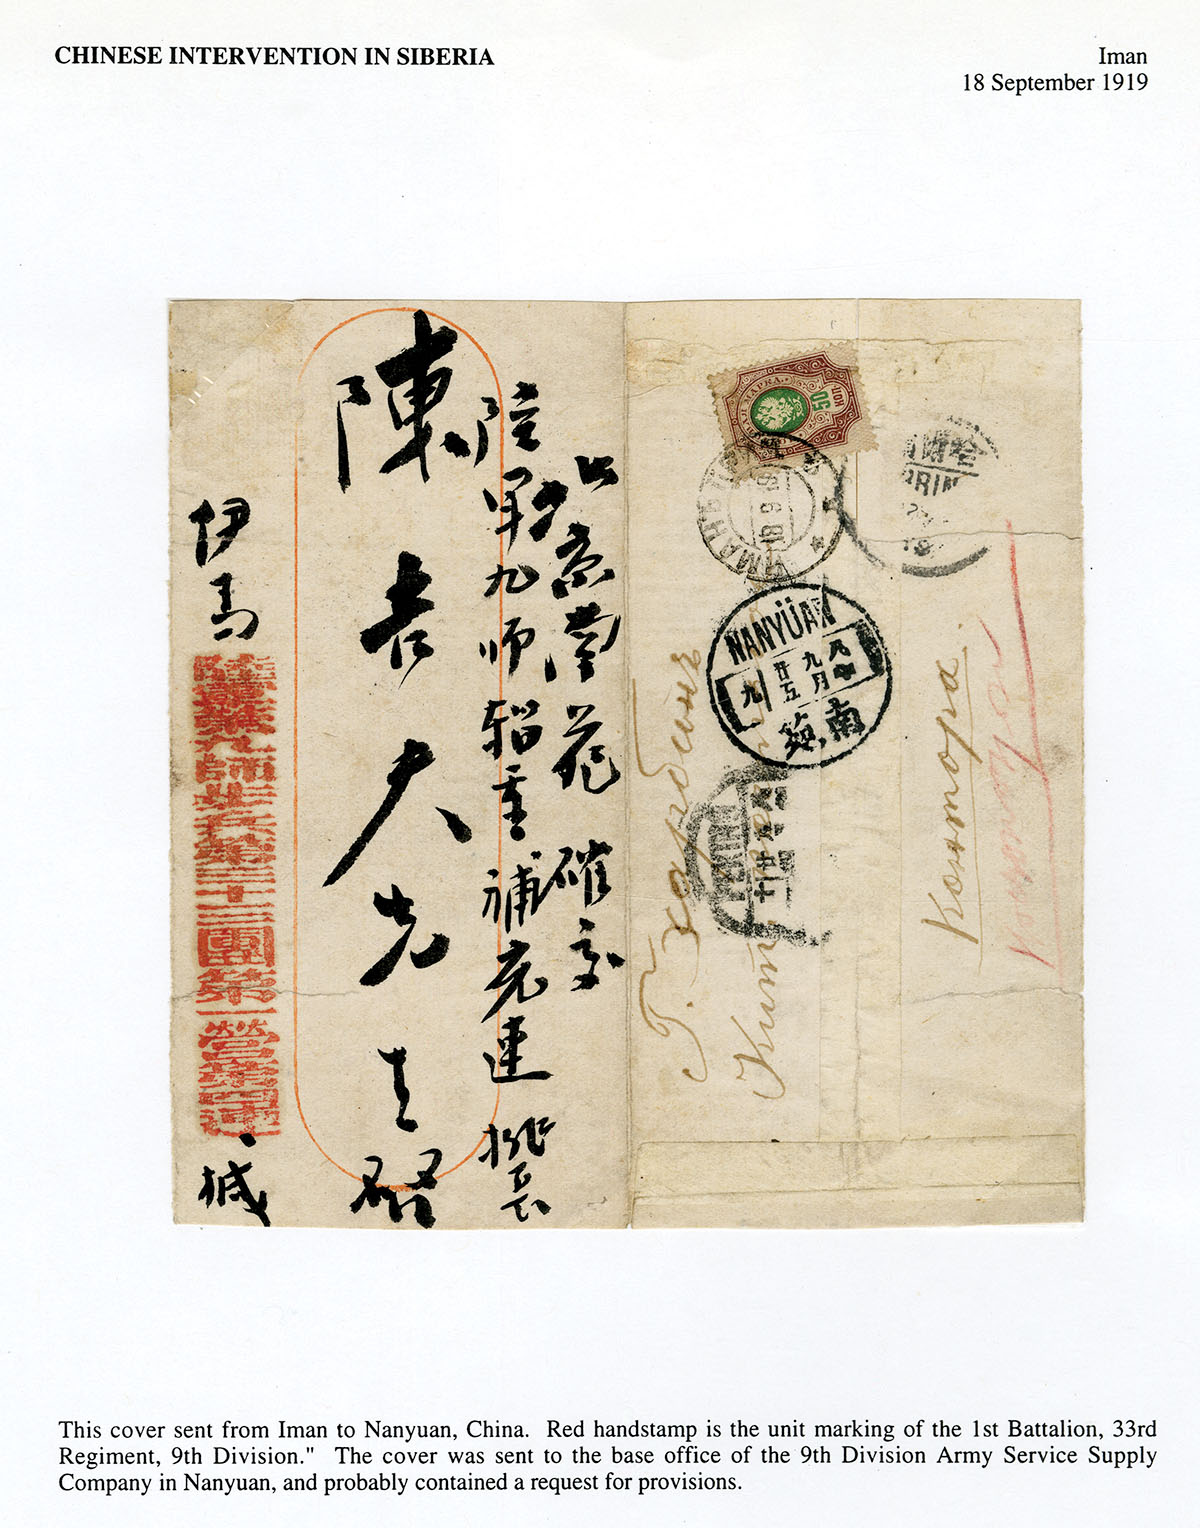 CHINESE INTERVENTION IN SIBERIA
Iman
18 September 1919
京南苑確交
陸軍九師輜重補充連
陳
大先生啓
伊馬
陸軍第九師步兵第三十三團第一營第四連
緘
50 КОП
МАРКА
ИМАН
18 9 19
哈爾
RBIN
NANYÜAN
八年
九月
廿五
九
南苑
PEKING
Г. Харбинъ
Контора
This cover sent from Iman to Nanyuan, China. Red handstamp is the unit marking of the 1st Battalion, 33rd
Regiment, 9th Division." The cover was sent to the base office of the 9th Division Army Service Supply
Company in Nanyuan, and probably contained a request for provisions.